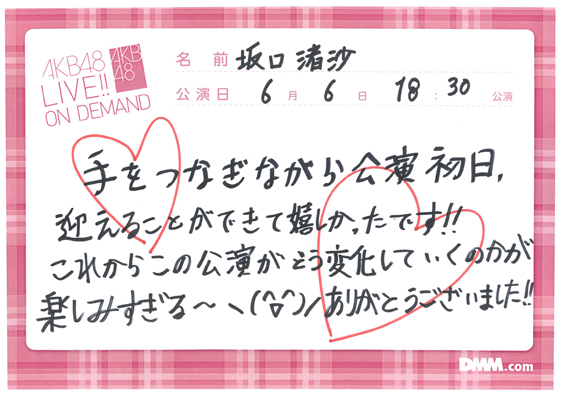 AKB48
LIVE!!
ON DEMAND
AKB
48
名前 坂口渚沙
公演日 6月6日 18:30 公演
手をつなぎながら公演初日,
迎えることができて嬉しかったです!!
これからこの公演がどう変化していくのかが
楽しみすぎる〜ヽ(^o^)ノありがとうございました!!
DMM.com